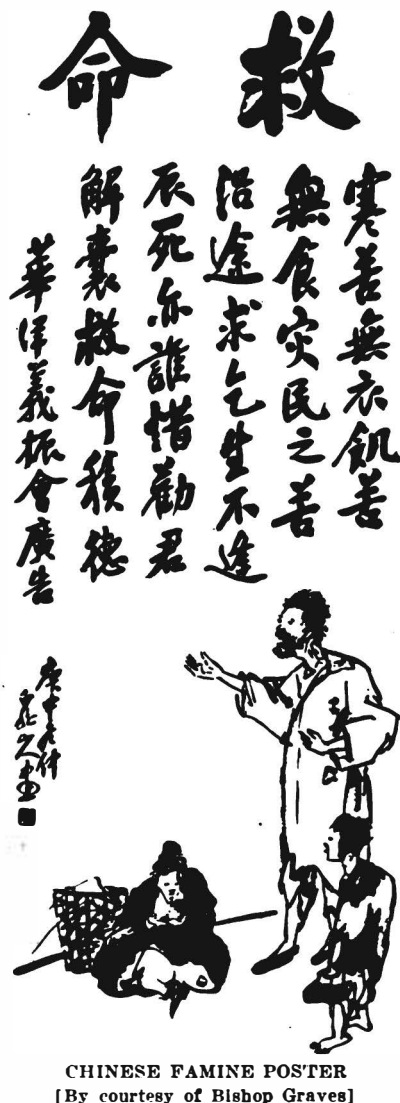 救命
寒苦無衣飢苦
無食灾民之苦
沿途求乞生不逢
辰死亦誰惜勸君
解囊救命積德
華洋義振會廣告
庚申
畫
CHINESE FAMINE POSTER
[By courtesy of Bishop Graves]